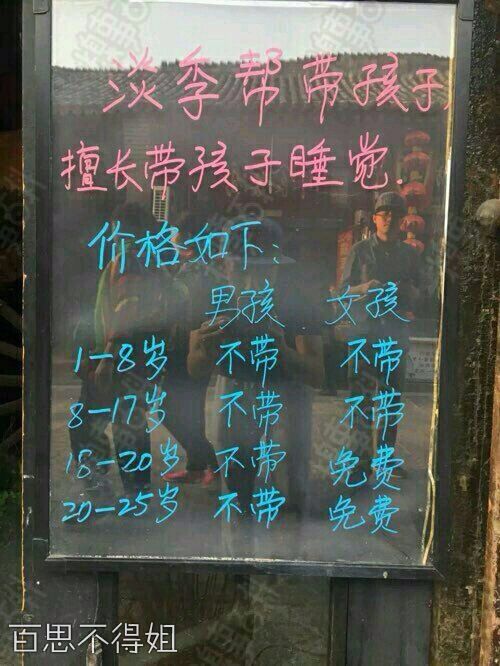 淡季帮带孩子
擅长带孩子睡觉.
价格如下:
男孩 女孩
1-8岁 不带 不带
8-17岁 不带 不带
18-20岁 不带 免费
20-25岁 不带 免费
百思不得姐